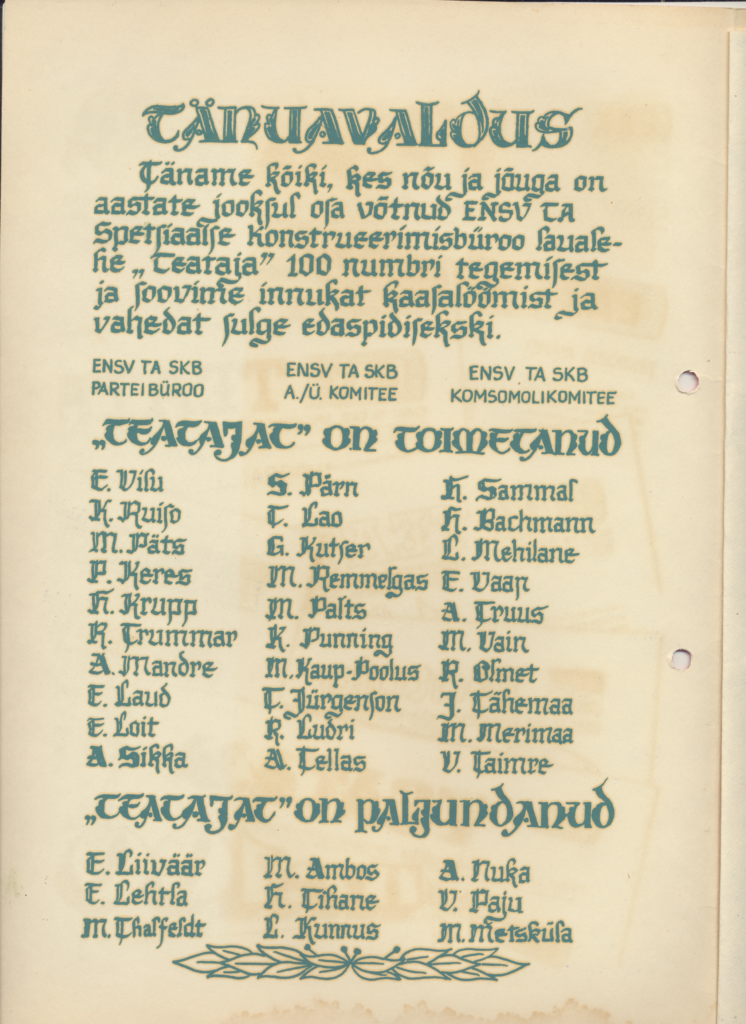 TÄNUAVALDUS
Täname kõiki, kes nõu ja jõuga on
aastate jooksul osa võtnud ENSV TA
Spetsiaalse Konstrueerimisbüroo sauale-
he „Teataja” 100 numbri tegemisest
ja soovime innukat kaasalöömist ja
vahedat sulge edaspidisekski.
ENSV TA SKB ENSV TA SKB ENSV TA SKB
PARTEIBÜROO A./Ü. KOMITEE KOMSOMOLIKOMITEE
„TEATAJAT” ON TOIMETANUD
E. Visu S. Pärn H. Sammal
K. Ruiso T. Lao H. Bachmann
M. Päts G. Kutser L. Mehilane
P. Keres M. Remmelgas E. Vaap
H. Krupp M. Palts A. Truus
R. Trummar K. Punning M. Vain
A. Mandre M. Kaup-Poolus R. Olmet
E. Laud T. Jürgenson J. Tähemaa
E. Loit R. Ludri M. Merimaa
A. Sikka A. Tellas V. Taimre
„TEATAJAT” ON PALJUNDANUD
E. Liiväär M. Ambos A. Nuka
E. Lehtla H. Tihane V. Paju
M. Thalfeldt L. Kunnus M. Metsküla